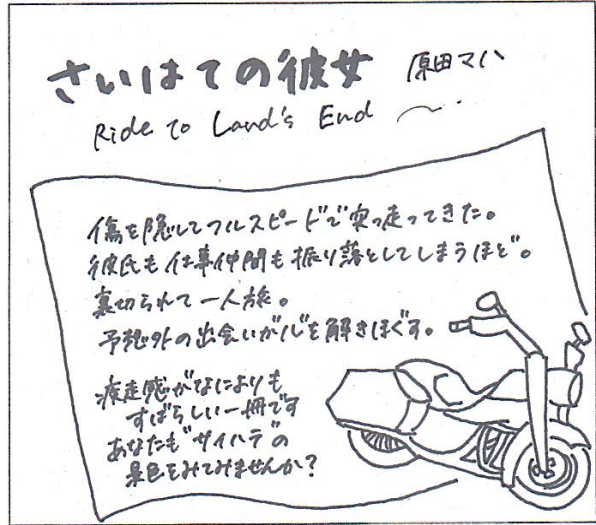 さいはての彼女 原田マハ
Ride to Land's End 〜.
傷を隠してフルスピードで突っ走ってきた。
彼氏も仕事仲間も振り落としてしまうほど。
裏切られて一人旅。
予想外の出会いが心を解きほぐす。
疾走感がなによりも
すばらしい一冊です
あなたも"サイハテ"の
景色をみてみませんか?